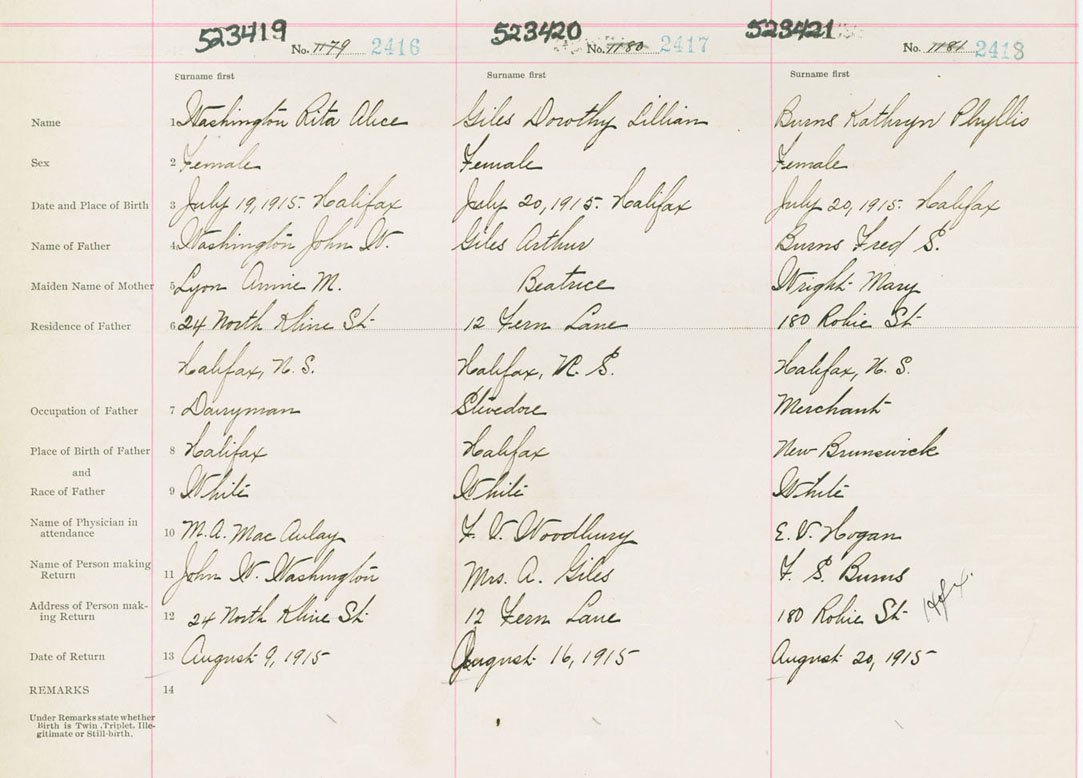 523419 523420 523421
No. 1179 2416 No. 1180 2417 No. 1181 2418
Surname first Surname first Surname first
Name 1 Washington Rita Alice Giles Dorothy Lillian Burns Kathryn Phyllis
Sex 2 Female Female Female
Date and Place of Birth 3 July 19, 1915. Halifax July 20, 1915. Halifax July 20, 1915. Halifax
Name of Father 4 Washington John W. Giles Arthur Burns Fred S.
Maiden Name of Mother 5 Lyon Annie M. Beatrice Wright Mary
Residence of Father 6 24 North Kline St 12 Fern Lane 180 Robie St
Halifax, N. S. Halifax, N. S. Halifax, N. S.
Occupation of Father 7 Dairyman Stevedore Merchant
Place of Birth of Father 8 Halifax Halifax New Brunswick
and
Race of Father 9 White White White
Name of Physician in
attendance 10 M. A. MacAulay F. V. Woodbury E. V. Hogan
Name of Person making
Return 11 John W. Washington Mrs. A. Giles F. S. Burns
Address of Person mak-
ing Return 12 24 North Kline St 12 Fern Lane 180 Robie St Hfx.
Date of Return 13 August 9, 1915 August 16, 1915 August 20, 1915
REMARKS 14
Under Remarks state whether
Birth is Twin, Triplet, Ille-
gitimate or Still-birth.